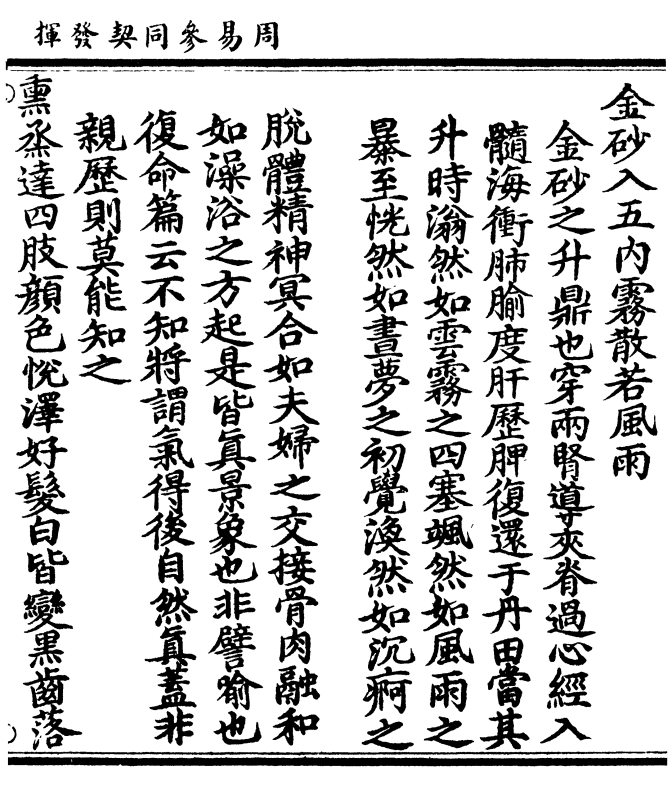 周易參同契發揮
金砂入五內霧散若風雨
金砂之升鼎也穿兩腎導夾脊過心經入
髓海衝肺腧度肝歷脾復還于丹田當其
升時滃然如雲霧之四塞颯然如風雨之
暴至恍然如晝夢之初覺渙然如沉痾之
脫體精神冥合如夫婦之交接骨肉融和
如澡浴之方起是皆眞景象也非譬喻也
復命篇云不知將謂氣得後自然眞蓋非
親歷則莫能知之
熏烝達四肢顏色悅澤好髮白皆變黑齒落